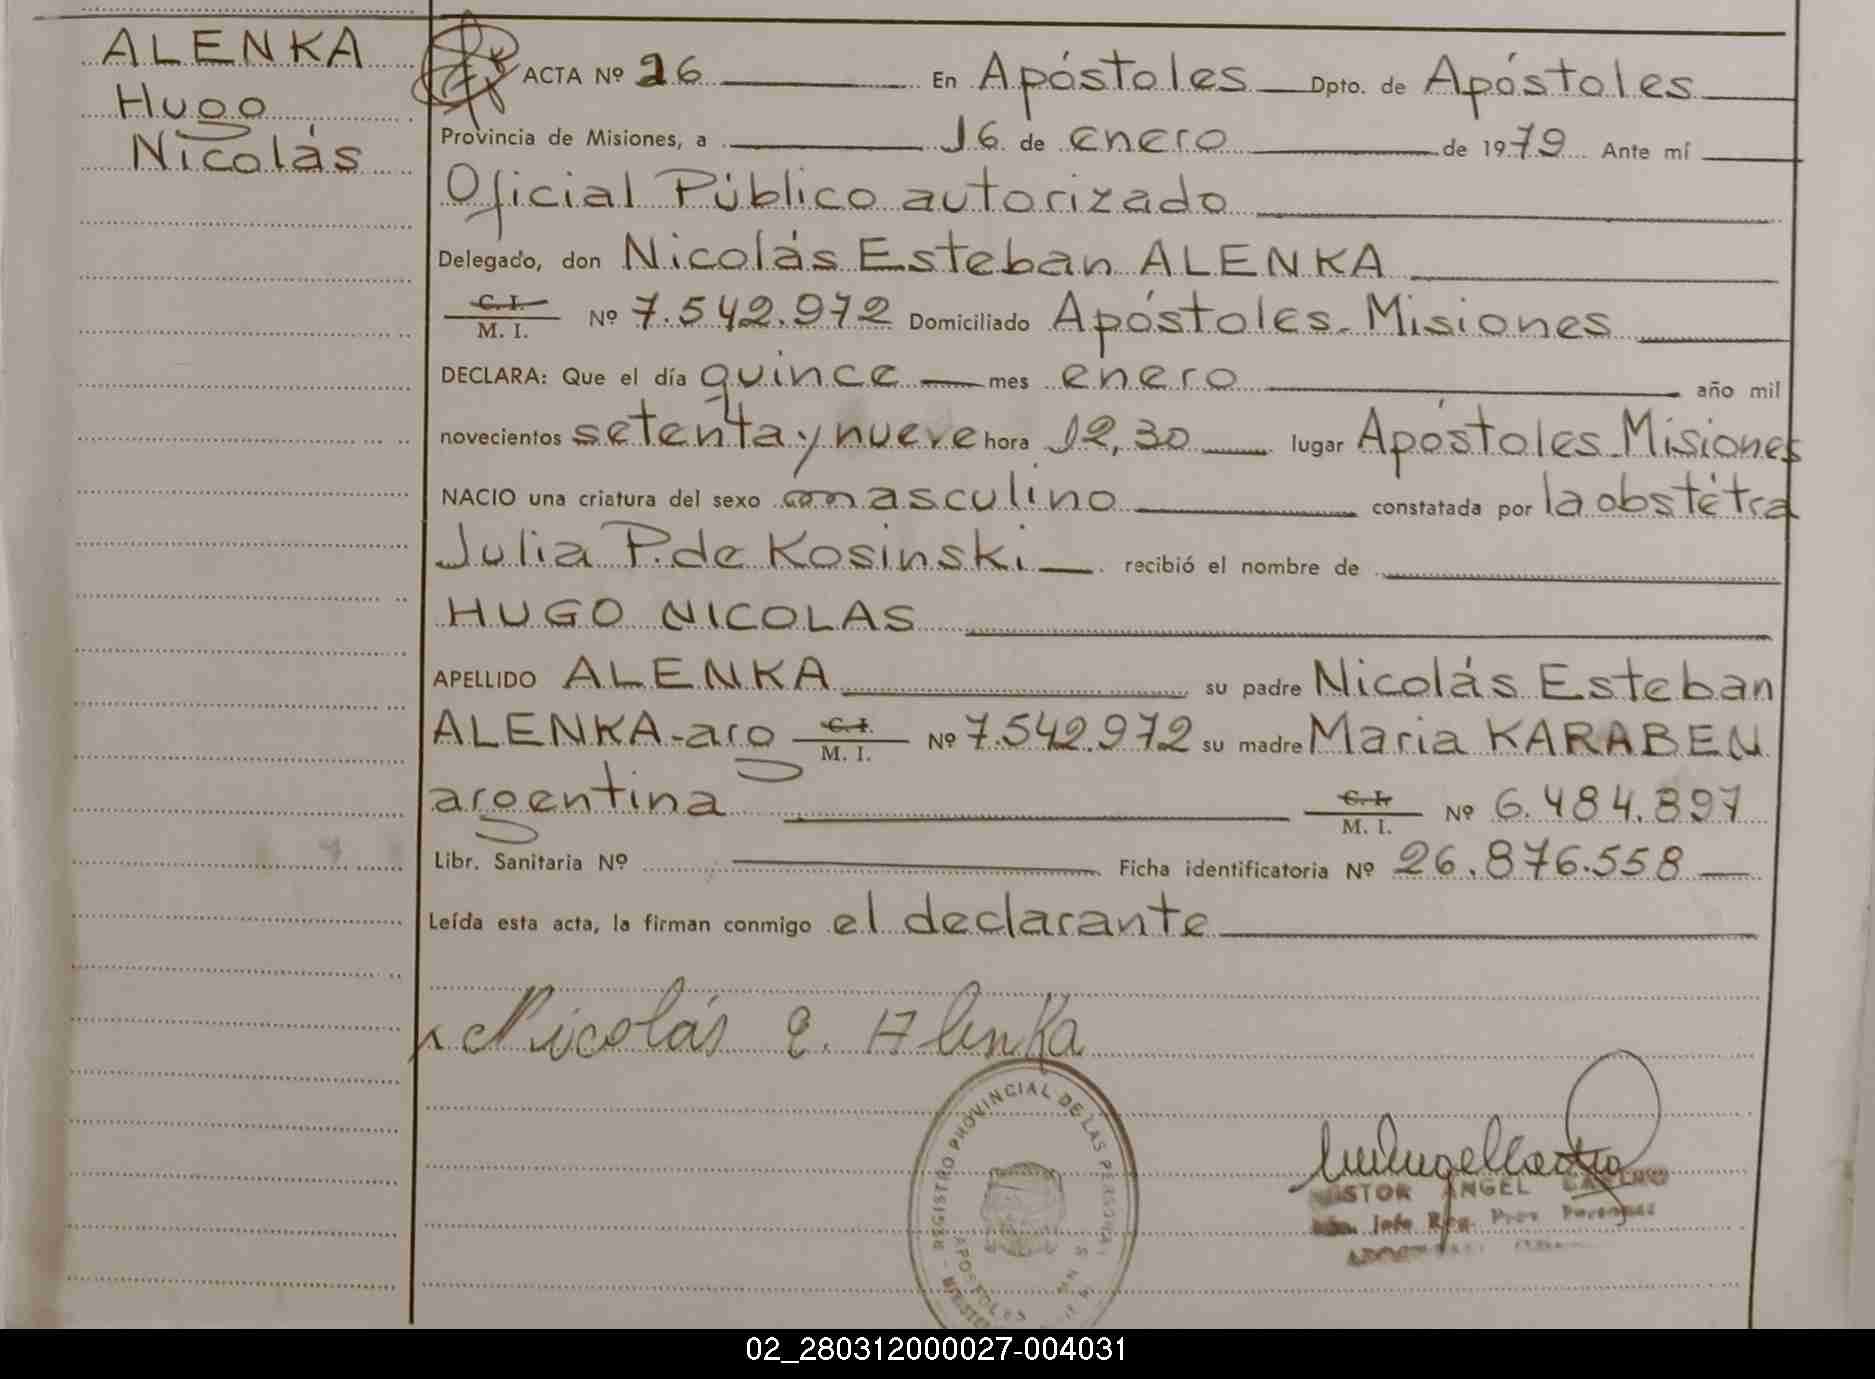 ALENKA
Hugo
Nicolás
ACTA Nº 26 En Apóstoles Dpto. de Apóstoles
Provincia de Misiones, a 16 de enero de 1979 Ante mí
Oficial Público autorizado
Delegado, don Nicolás Esteban ALENKA
C. I.
M. I. Nº 7.542.972 Domiciliado Apóstoles. Misiones
DECLARA: Que el día quince mes enero año mil
novecientos setenta y nueve hora 12,30 lugar Apóstoles. Misiones
NACIO una criatura del sexo masculino constatada por la obstétra
Julia P. de Kosinski recibió el nombre de
HUGO NICOLAS
APELLIDO ALENKA su padre Nicolás Esteban
ALENKA-arg C. I.
M. I. Nº 7.542.972 su madre Maria KARABEN
argentina C. I.
M. I. Nº 6.484.897
Libr. Sanitaria Nº Ficha identificatoria Nº 26.876.558
Leída esta acta, la firman conmigo el declarante
Nicolás E. Alenka
REGISTRO PROVINCIAL DE LAS PERSONAS
APOSTOLES
ANGEL
02_280312000027-004031